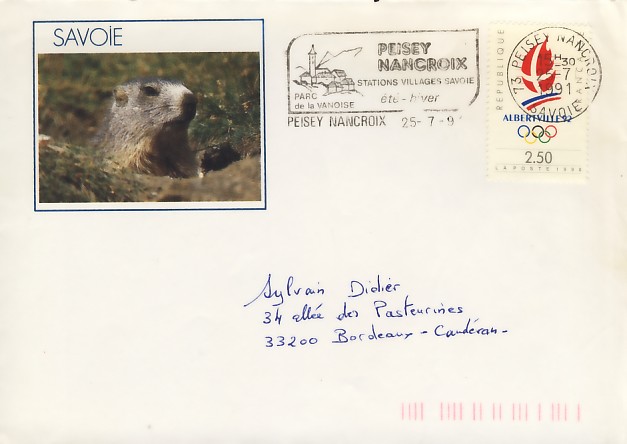 SAVOIE
PEISEY
NANCROIX
STATIONS VILLAGES SAVOIE
PARC
de la VANOISE
été - hiver
PEISEY NANCROIX 25-7-9
73 PEISEY NANCROIX
-7
1991
SAVOIE
REPUBLIQUE
ALBERTVILLE 92
2.50
LA POSTE 1990
Sylvain Didier
34 allée des Pasteurines
33200 Bordeaux - Caudéran -